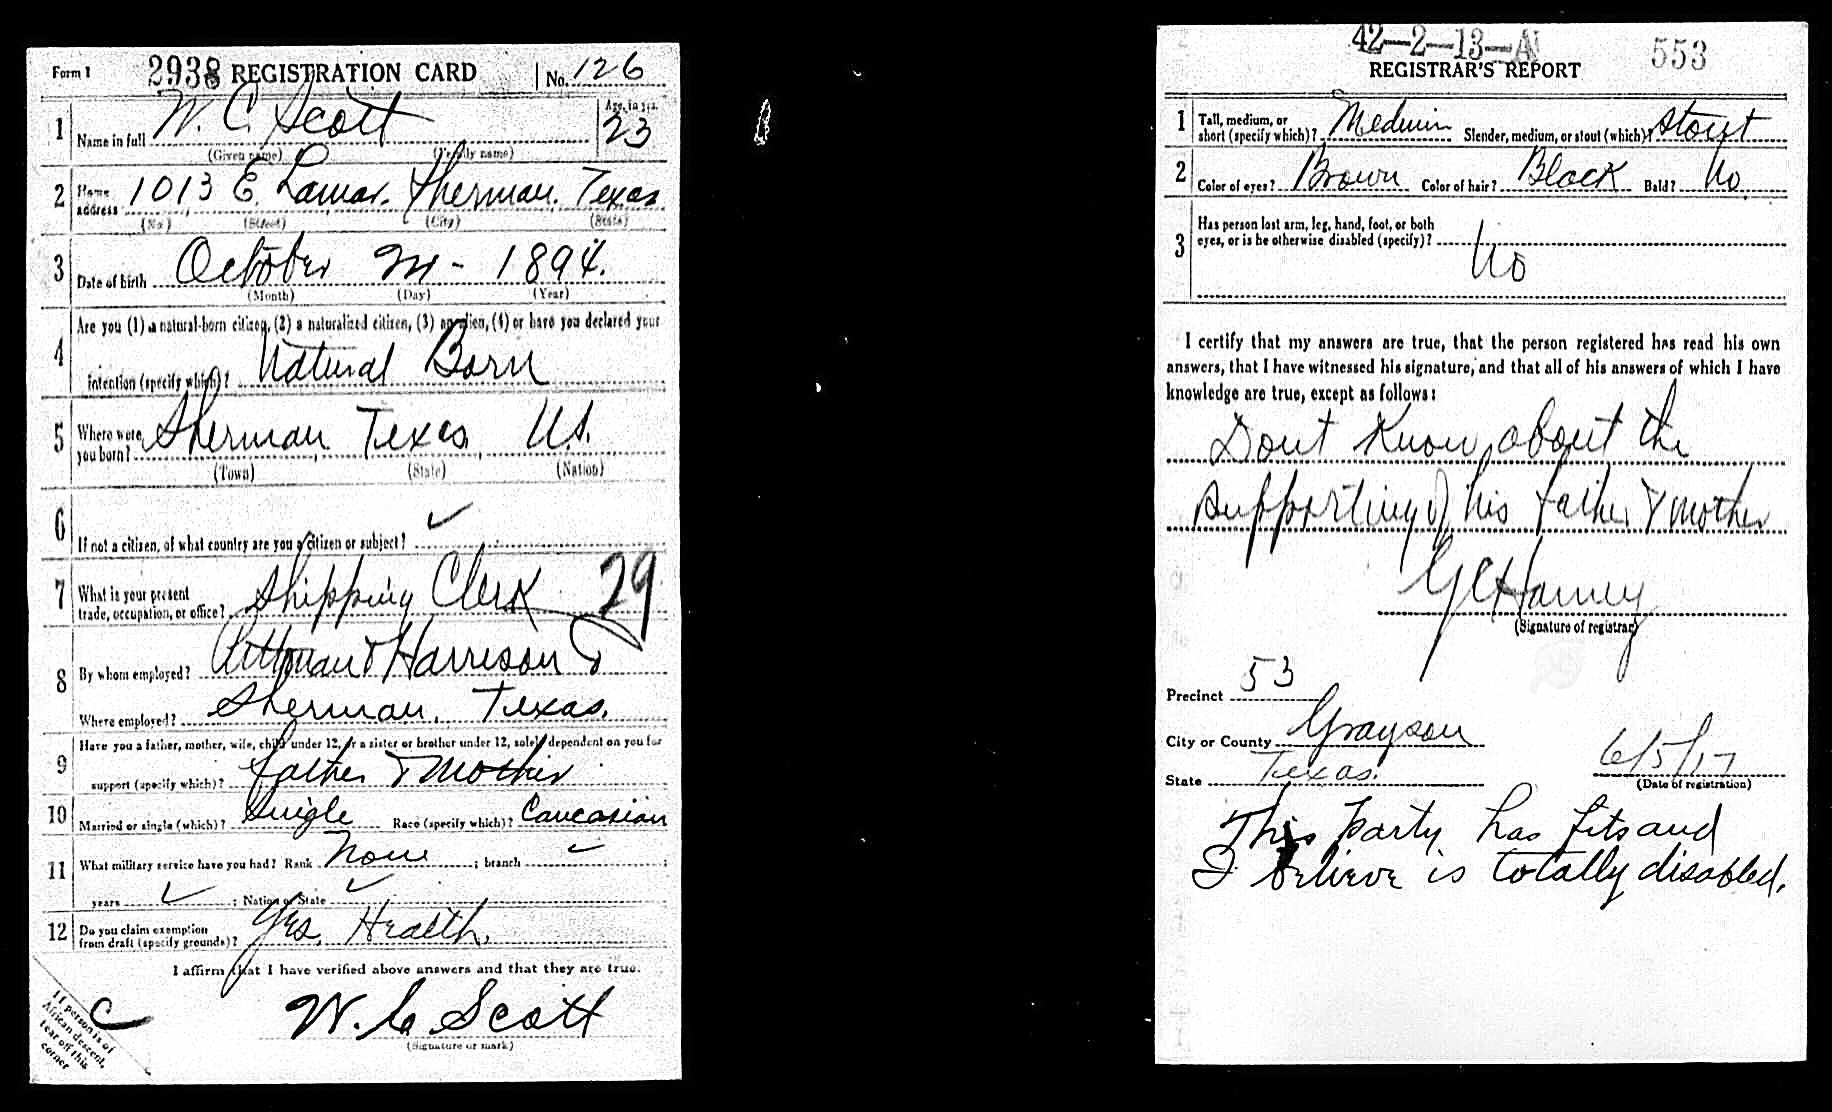 Form 1 2938 REGISTRATION CARD No. 126
1 Name in full W. C. Scott Age, in yrs. 23
(Given name) (Family name)
2 Home address 1013 E Lamar. Sherman. Texas
(No.) (Street) (City) (State)
3 Date of birth October - 1894.
(Month) (Day) (Year)
4 Are you (1) a natural-born citizen, (2) a naturalized citizen, (3) an alien, (4) or have you declared your
intention (specify which)? Natural Born
5 Where were you born? Sherman, Texas, US.
(Town) (State) (Nation)
6 If not a citizen, of what country are you a citizen or subject? ✓
7 What is your present trade, occupation, or office? Shipping Clerk 29
8 By whom employed? Harrison
Where employed? Sherman, Texas.
9 Have you a father, mother, wife, child under 12, or a sister or brother under 12, solely dependent on you for
support (specify which)? father & mother
10 Married or single (which)? Single Race (specify which)? Caucasian
11 What military service have you had? Rank None ; branch ✓ ;
years ✓ ; Nation or State ✓
12 Do you claim exemption from draft (specify grounds)? Yes. Health.
I affirm that I have verified above answers and that they are true.
W. C. Scott
(Signature or mark)
If person is of African descent, tear off this corner
C
42—2—13—A 553
REGISTRAR'S REPORT
1 Tall, medium, or short (specify which)? Medium Slender, medium, or stout (which)? stout
2 Color of eyes? Brown Color of hair? Black Bald? No
3 Has person lost arm, leg, hand, foot, or both
eyes, or is he otherwise disabled (specify)? No
I certify that my answers are true, that the person registered has read his own
answers, that I have witnessed his signature, and that all of his answers of which I have
knowledge are true, except as follows:
Dont Know about the
supporting of his father & mother
(Signature of registrar)
Precinct 53
City or County Grayson
State Texas. 6/5/17
(Date of registration)
This party has fits and
I believe is totally disabled.